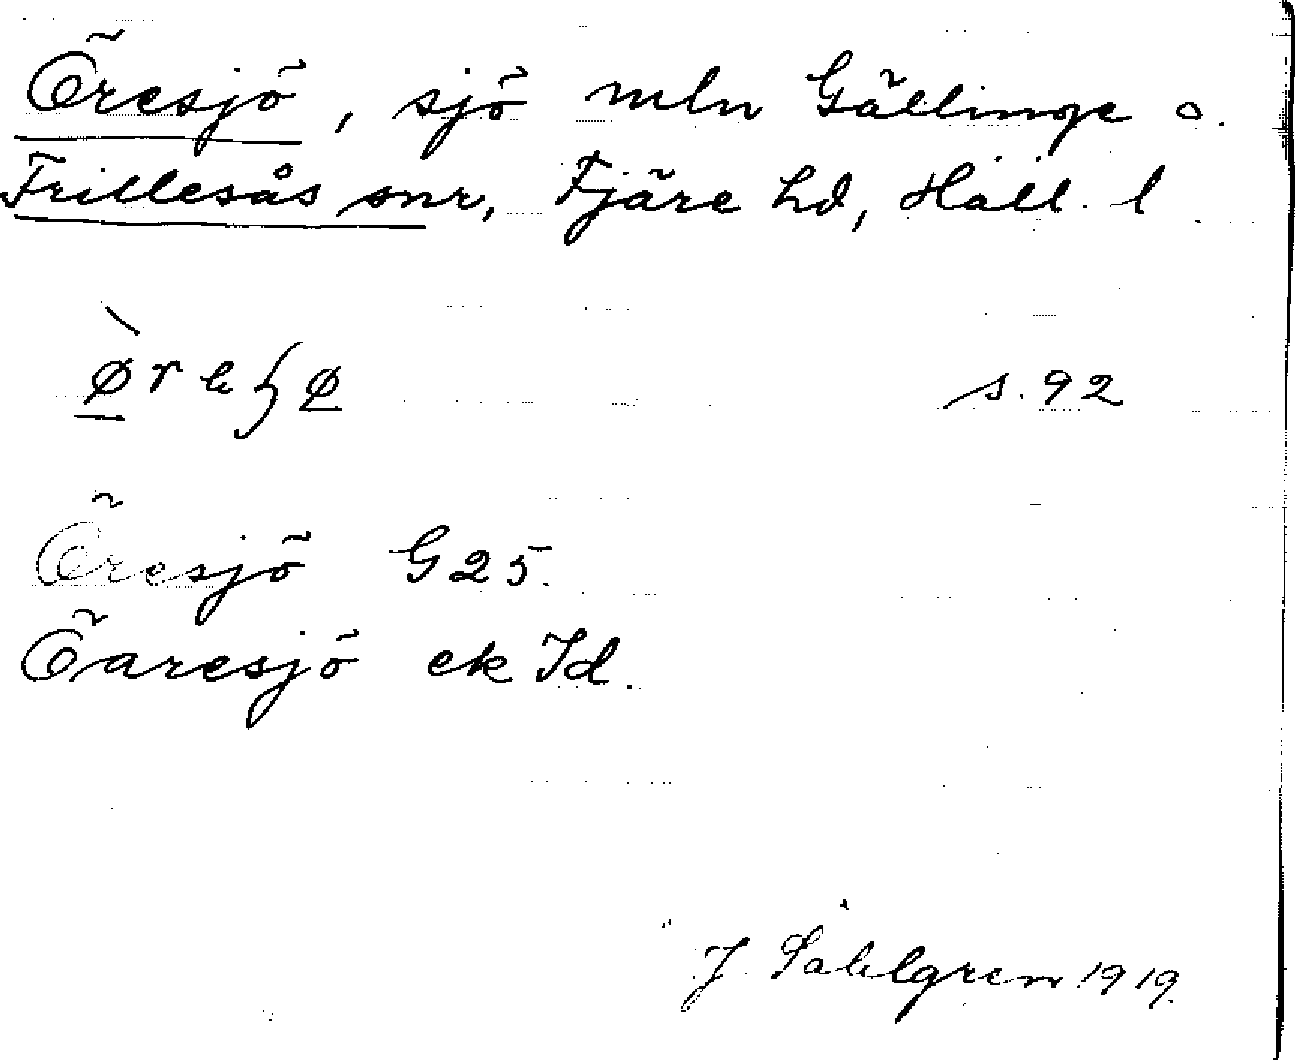 Öresjö, sjö mln Gällinge o.
Frillesås snr, Fjäre hd, Hall. l.
s. 92
Öresjö G25.
Öaresjö ek Id.
J Sahlgren 1919.